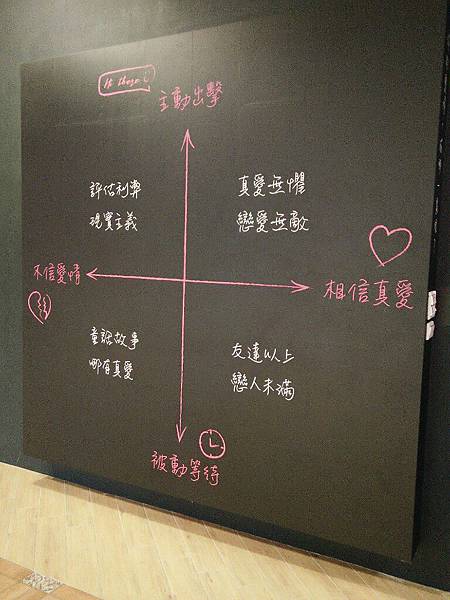 Hi there!
主動出擊
評估利弊
現實主義
真愛無懼
戀愛無敵
不信愛情
相信真愛
童話故事
哪有真愛
友達以上
戀人未滿
被動等待